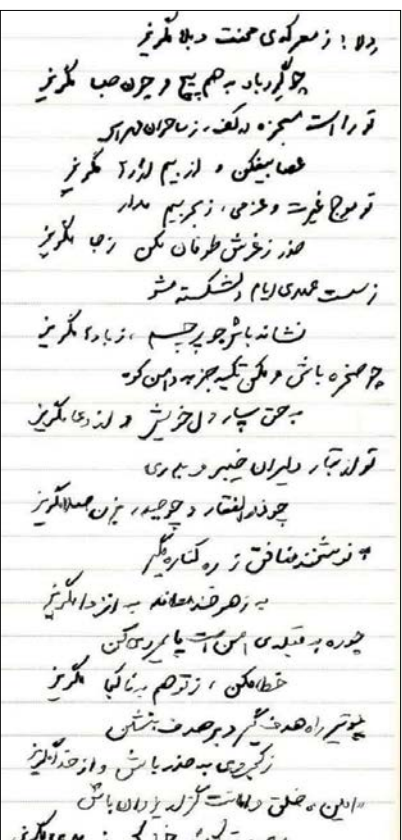 دلا! ز معرکه‌ی محنت و بلا مگریز
چو گردباد به هم پیچ و چون صبا مگریز
تو را است معجزه در کف، ز ساحران مهراس
عصا بیفکن و از بیم اژدها مگریز
تو موج غیرت و عزمی، ز بحر بیم مدار
حذر ز غرش طوفان مکن ز جا مگریز
ز سست عهدی ایام دلشکسته مشو
نشانه باش چو پرچم، ز بادها مگریز
چو صخره باش و مکن تکیه جز به دامن کوه
به حق سپار دل خویش و از دعا مگریز
تو از تبار دلیران خیبر و بدری
چو ذوالفقار و چو حیدر بزن صلا مگریز
به نوشخند منافق ز ره کناره مگیر
به زهرخند معاند به انزوا مگریز
چو ره به قبله‌ی امن است پایمردی کن
خطا مکن، ز توهم به ناکجا مگریز
چو تیر راه هدف گیر و بر هدف بنشین
ز کجروی به حذر باش و از خدا مگریز
امین خلق و امانت گزار یزدان باش